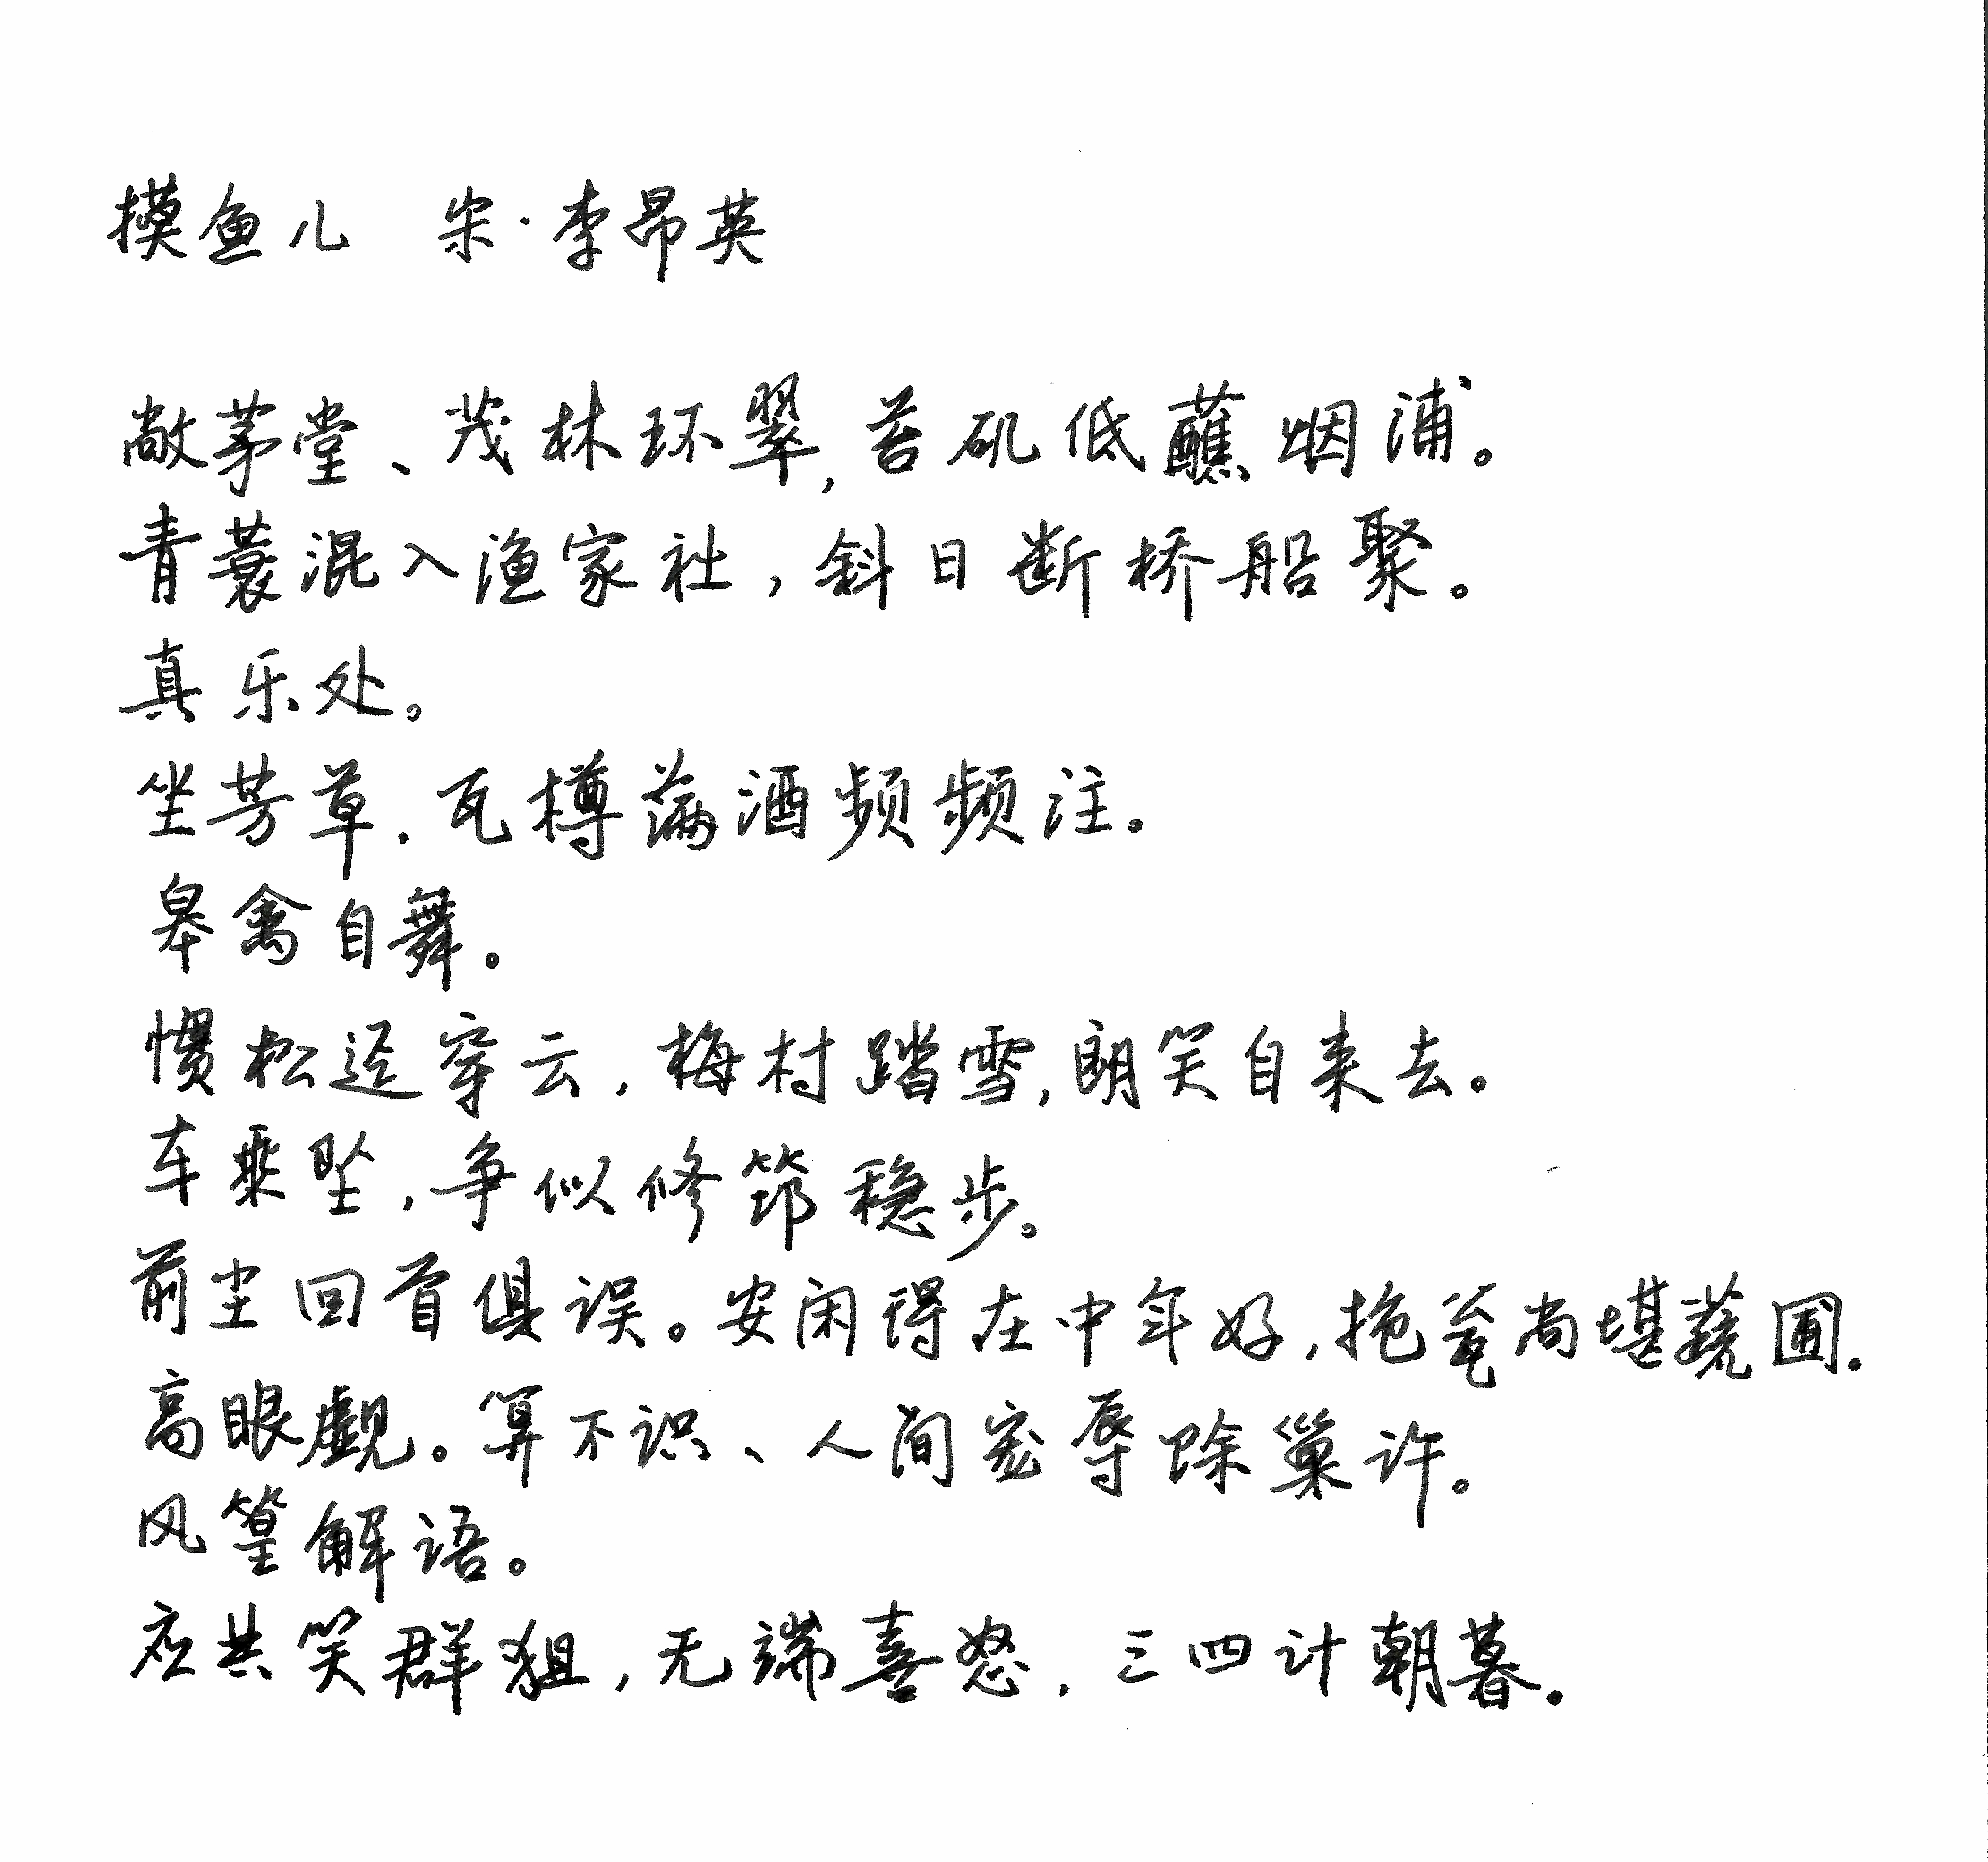 摸鱼儿 宋·李昂英
敞茅堂、茂林环翠,苔矶低蘸烟浦。
青蓑混入渔家社,斜日断桥船聚。
真乐处。
坐芳草,瓦樽满酒频频注。
皋禽自舞。
惯松迳穿云,梅村踏雪,朗笑自来去。
车乘坠,争似修筇稳步。
前尘回首俱误。安闲得在中年好,抱瓮尚堪蔬圃.
高眼觑。算不识、人间宠辱除巢许。
风篁解语。
应共笑群狙,无端喜怒,三四计朝暮。